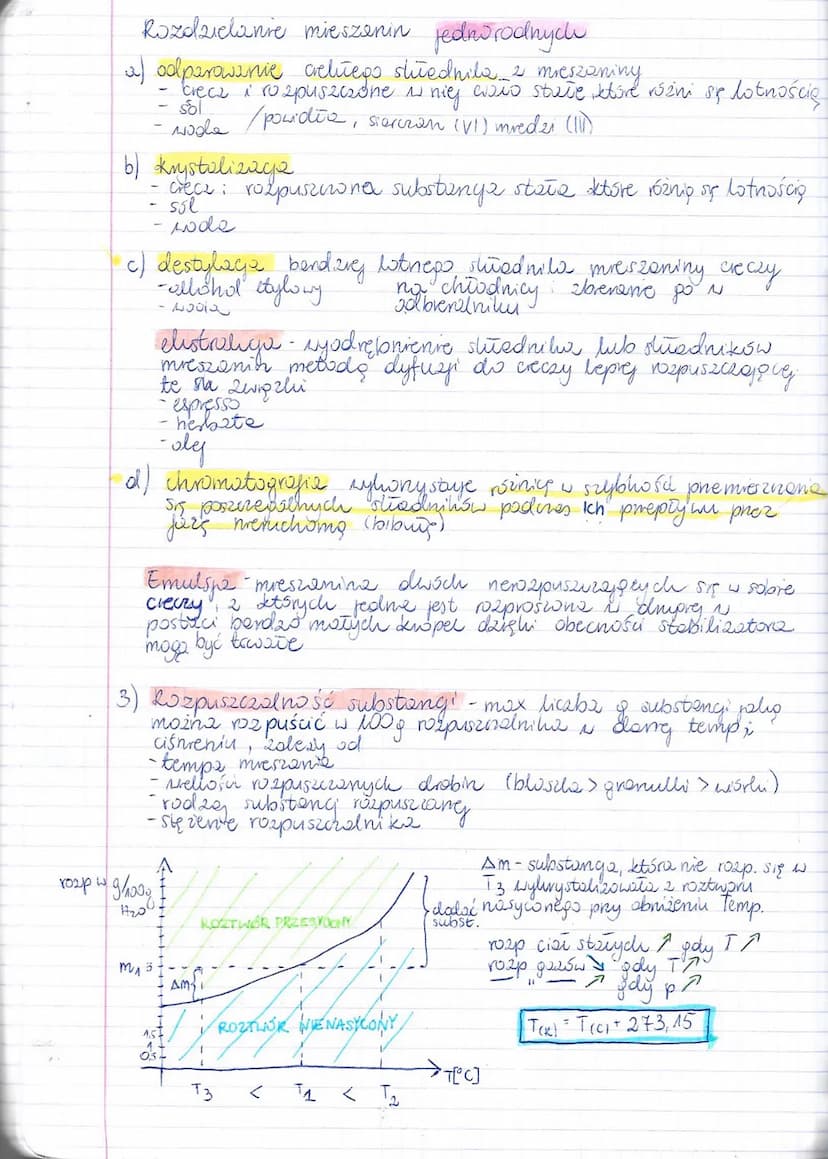 Rozdzielanie mieszanin jednorodnych
a) odparowanie ciekłego składnika z mieszaniny
- ciecz i rozpuszczone w niej ciało stałe, które różni się lotnością
- sól
- woda /powidła, siarczan (VI) miedzi (II)
b) krystalizacja
- ciecz i rozpuszczona substancja stała które różnią się lotnością
- sól
- woda
c) destylacja bardziej lotnego składnika mieszaniny cieczy
- alkohol etylowy na chłodnicy i zbieranie go w
- woda odbieralniku
ekstrakcja - wyodrębnienie składnika lub składników
mieszanin metodą dyfuzji do cieczy lepiej rozpuszczającej
te związki
- espresso
- herbata
- olej
d) chromatografia wykorzystuje różnicę w szybkości przemieszczania
się poszczególnych składników podczas ich przepływu przez
fazę nieruchomą (bibułę)
Emulsja - mieszanina dwóch nierozpuszczających się w sobie
cieczy, z których jedna jest rozproszona w drugiej w
postaci bardzo małych kropel dzięki obecności stabilizatora
mogą być trwałe
3) Rozpuszczalność substancji - max liczba g substancji jaką
można rozpuścić w 100g rozpuszczalnika w danej temp i
ciśnieniu, zależy od
- tempa mieszania
- wielkości rozpuszczanych drobin (blaszka > granulki > wiórki)
- rodzaj substancji rozpuszczanej
- stężenie rozpuszczalnika
rozp w g/100g
H₂O
ROZTWÓR PRZESYCONY
dodać
subst.
m₁ 3
Δm
ROZTWÓR NIENASYCONY
1,5
1
0,5
T[°C]
T₃ < T₁ < T₂
Δm - substancja, która nie rozp. się w
T₃ wykrystalizowała z roztworu
nasyconego przy obniżeniu temp.
rozp ciał stałych ↗ gdy T ↗
rozp gazów ↘ gdy T ↗
— " — ↗ gdy p ↗
T(K) = T(C) + 273,15